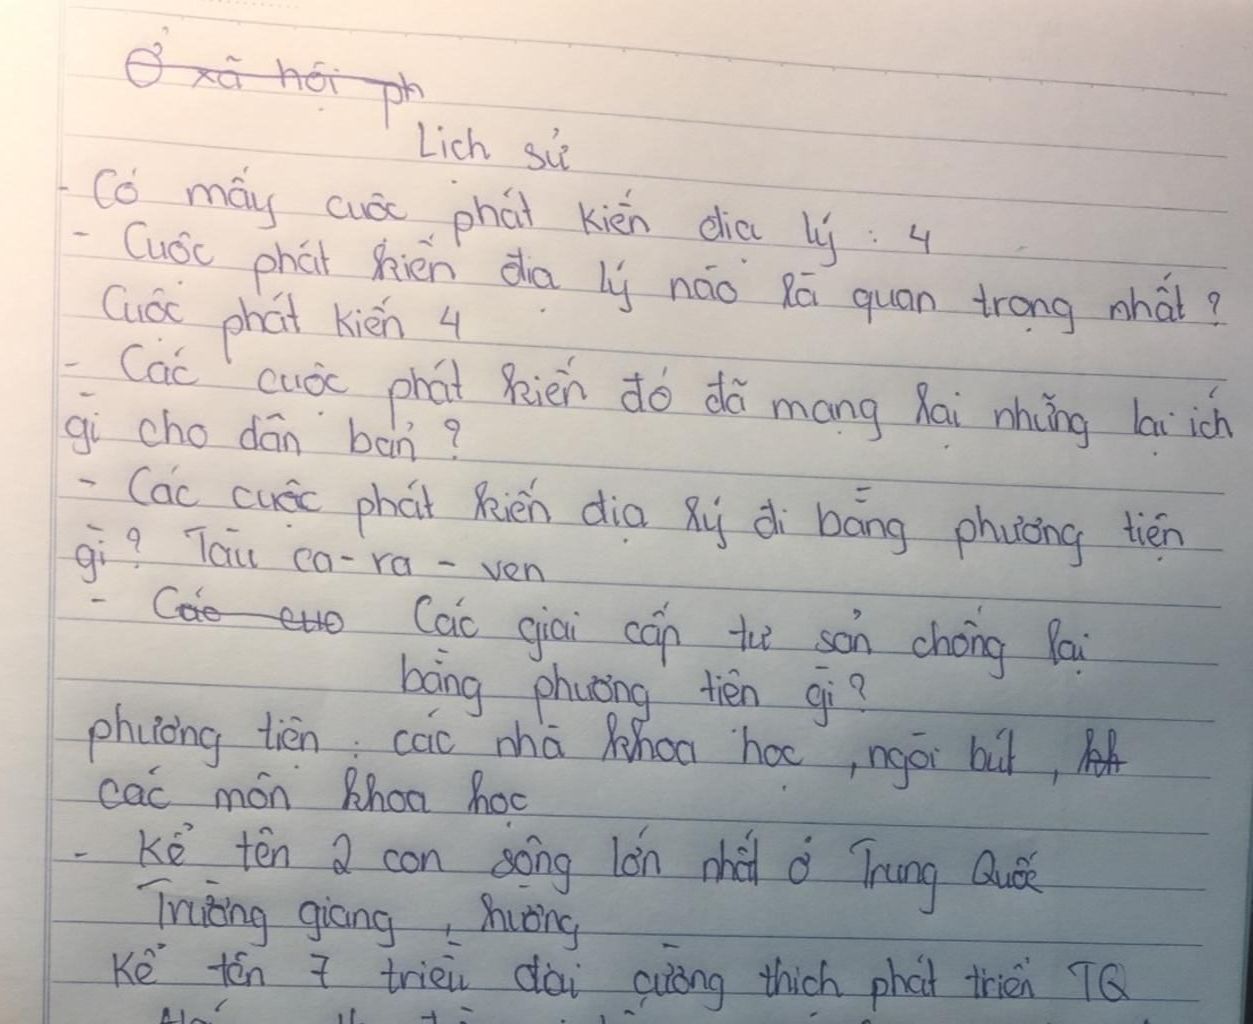 Ở xã hội ph
Lịch sử
- Có mấy cuộc phát kiến địa lý : 4
- Cuộc phát kiến địa lý nào là quan trọng nhất ?
Cuộc phát kiến 4
- Các cuộc phát kiến đó đã mang lại những lại ích
gì cho dân bản ?
- Các cuộc phát kiến địa lý đi bằng phương tiện
gì ? Tàu ca-ra-ven
- Các cuo Các giai cấp tư sản chống lại
bằng phương tiện gì ?
phương tiện : các nhà khoa học , ngòi bút , kh
các môn khoa học
- Kể tên 2 con sông lớn nhất ở Trung Quốc
Trường giang , hương
Kể tên 7 triều đại cường thịch phát triển TQ